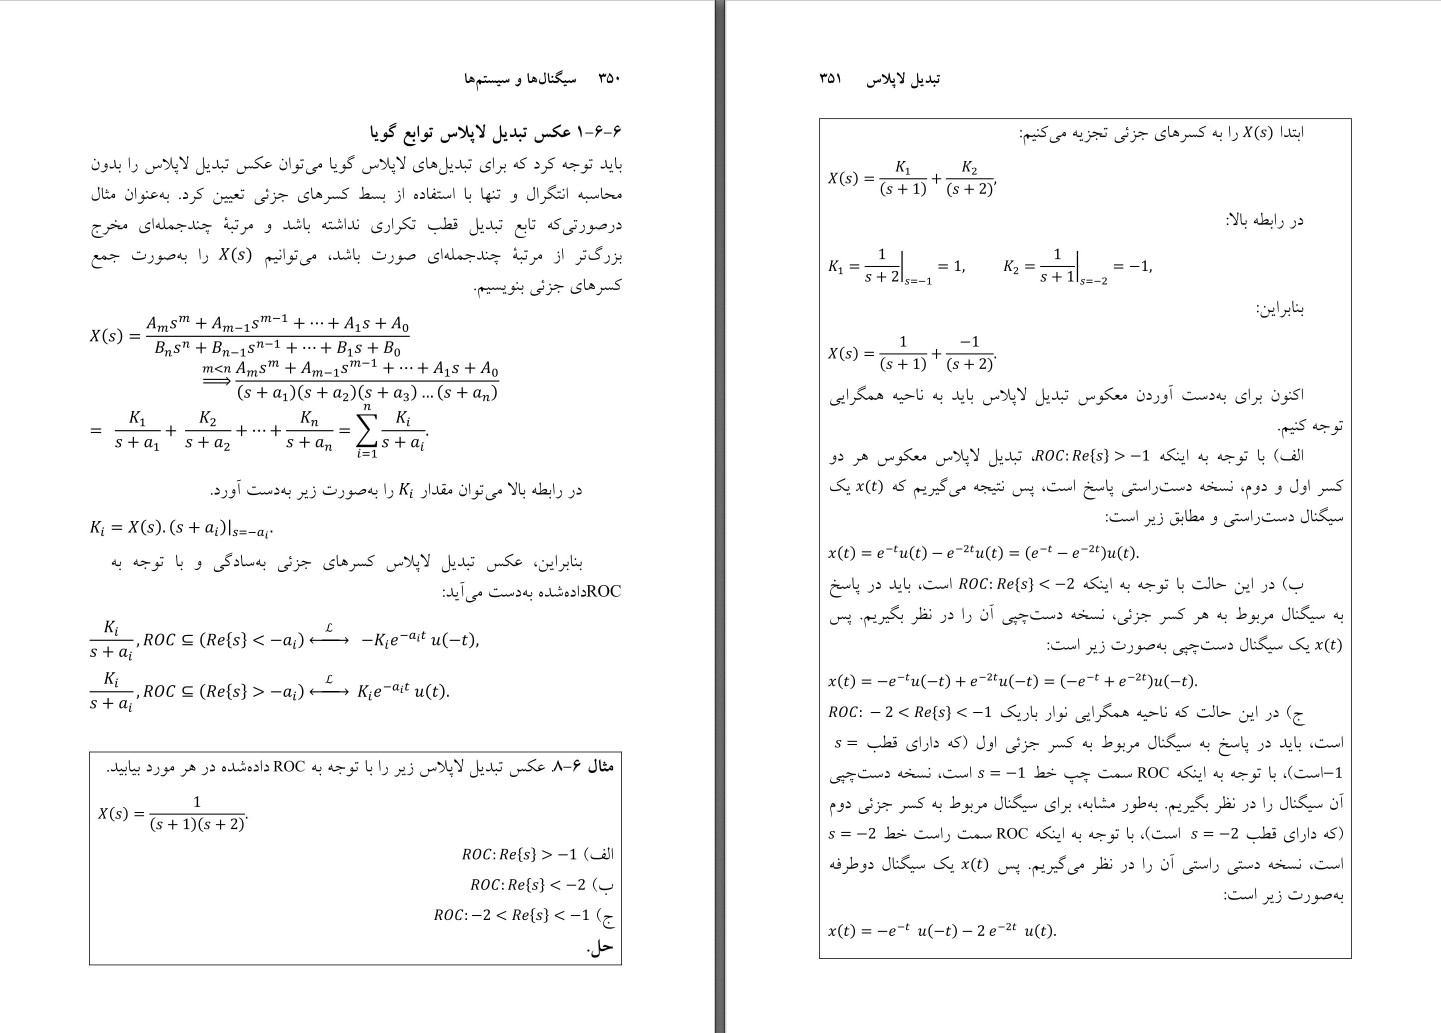 ۳۵۰ سیگنال‌ها و سیستم‌ها
۶-۶-۱ عکس تبدیل لاپلاس توابع گویا
باید توجه کرد که برای تبدیل‌های لاپلاس گویا می‌توان عکس تبدیل لاپلاس را بدون
محاسبه انتگرال و تنها با استفاده از بسط کسرهای جزئی تعیین کرد. به‌عنوان مثال
درصورتی‌که تابع تبدیل قطب تکراری نداشته باشد و مرتبهٔ چندجمله‌ای مخرج
بزرگ‌تر از مرتبهٔ چندجمله‌ای صورت باشد، می‌توانیم X(s) را به‌صورت جمع
کسرهای جزئی بنویسیم.
X(s) = (A_m s^m + A_{m−1} s^{m−1} + ⋯ + A_1 s + A_0)/(B_n s^n + B_{n−1} s^{n−1} + ⋯ + B_1 s + B_0)
m<n ⟹ (A_m s^m + A_{m−1} s^{m−1} + ⋯ + A_1 s + A_0)/((s + a_1)(s + a_2)(s + a_3) … (s + a_n))
= K_1/(s + a_1) + K_2/(s + a_2) + ⋯ + K_n/(s + a_n) = ∑_{i=1}^{n} K_i/(s + a_i).
در رابطه بالا می‌توان مقدار K_i را به‌صورت زیر به‌دست آورد.
K_i = X(s). (s + a_i)|_{s=−a_i}.
بنابراین، عکس تبدیل لاپلاس کسرهای جزئی به‌سادگی و با توجه به
ROCداده‌شده به‌دست می‌آید:
K_i/(s + a_i), ROC ⊆ (Re{s} < −a_i) ⟷^ℒ −K_i e^{−a_i t} u(−t),
K_i/(s + a_i), ROC ⊆ (Re{s} > −a_i) ⟷^ℒ K_i e^{−a_i t} u(t).
مثال ۶-۸. عکس تبدیل لاپلاس زیر را با توجه به ROC داده‌شده در هر مورد بیابید.
X(s) = 1/((s + 1)(s + 2)).
الف) ROC: Re{s} > −1
ب) ROC: Re{s} < −2
ج) ROC: −2 < Re{s} < −1
حل.
تبدیل لاپلاس ۳۵۱
ابتدا X(s) را به کسرهای جزئی تجزیه می‌کنیم:
X(s) = K_1/(s + 1) + K_2/(s + 2),
در رابطه بالا:
K_1 = 1/(s + 2)|_{s=−1} = 1, K_2 = 1/(s + 1)|_{s=−2} = −1,
بنابراین:
X(s) = 1/(s + 1) + −1/(s + 2).
اکنون برای به‌دست آوردن معکوس تبدیل لاپلاس باید به ناحیه همگرایی
توجه کنیم.
الف) با توجه به اینکه ROC: Re{s} > −1، تبدیل لاپلاس معکوس هر دو
کسر اول و دوم، نسخه دست‌راستی پاسخ است، پس نتیجه می‌گیریم که x(t) یک
سیگنال دست‌راستی و مطابق زیر است:
x(t) = e^{−t}u(t) − e^{−2t}u(t) = (e^{−t} − e^{−2t})u(t).
ب) در این حالت با توجه به اینکه ROC: Re{s} < −2 است، باید در پاسخ
به سیگنال مربوط به هر کسر جزئی، نسخه دست‌چپی آن را در نظر بگیریم. پس
x(t) یک سیگنال دست‌چپی به‌صورت زیر است:
x(t) = −e^{−t}u(−t) + e^{−2t}u(−t) = (−e^{−t} + e^{−2t})u(−t).
ج) در این حالت که ناحیه همگرایی نوار باریک ROC: − 2 < Re{s} < −1
است، باید در پاسخ به سیگنال مربوط به کسر جزئی اول (که دارای قطب s =
−1است)، با توجه به اینکه ROC سمت چپ خط s = −1 است، نسخه دست‌چپی
آن سیگنال را در نظر بگیریم. به‌طور مشابه، برای سیگنال مربوط به کسر جزئی دوم
(که دارای قطب s = −2 است)، با توجه به اینکه ROC سمت راست خط s = −2
است، نسخه دستی راستی آن را در نظر می‌گیریم. پس x(t) یک سیگنال دوطرفه
به‌صورت زیر است:
x(t) = −e^{−t} u(−t) − 2 e^{−2t} u(t).